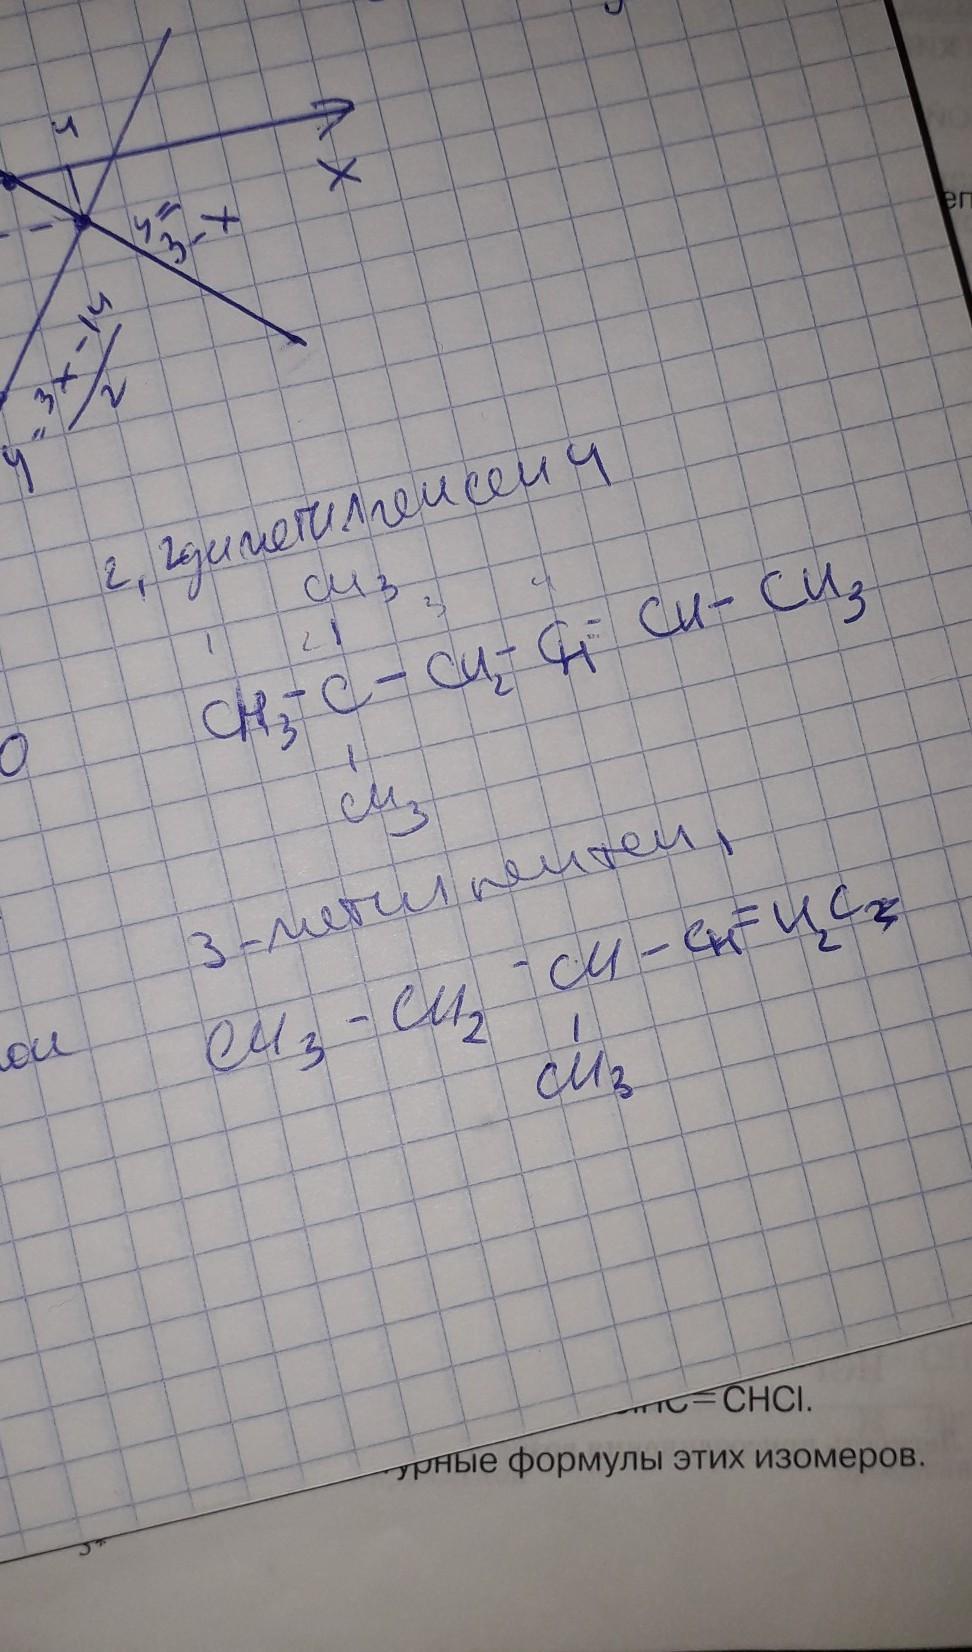 4
x
y=
3-x
y=
3x-14
2
2, 2диметилгексен 4
CH3
1 2 3 4
CH3-C-CH2-CH=CH-CH3
CH3
0
3-метилпентен1
CH3-CH2-CH-CH=H2C
CH3
=CHCl.
урные формулы этих изомеров.